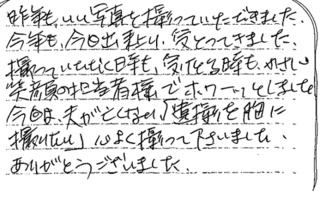 昨年も、いい写真を撮っていただきました。
今年も、今日出来上り、受とってきました。
撮っていただく日時も、受け とる時も、かわいい
笑顔の担当者様でホワーッとしました
今回は、夫が亡くなり「遺影を胸に
撮りたい」心よく撮って下いました。
ありがとうございました。